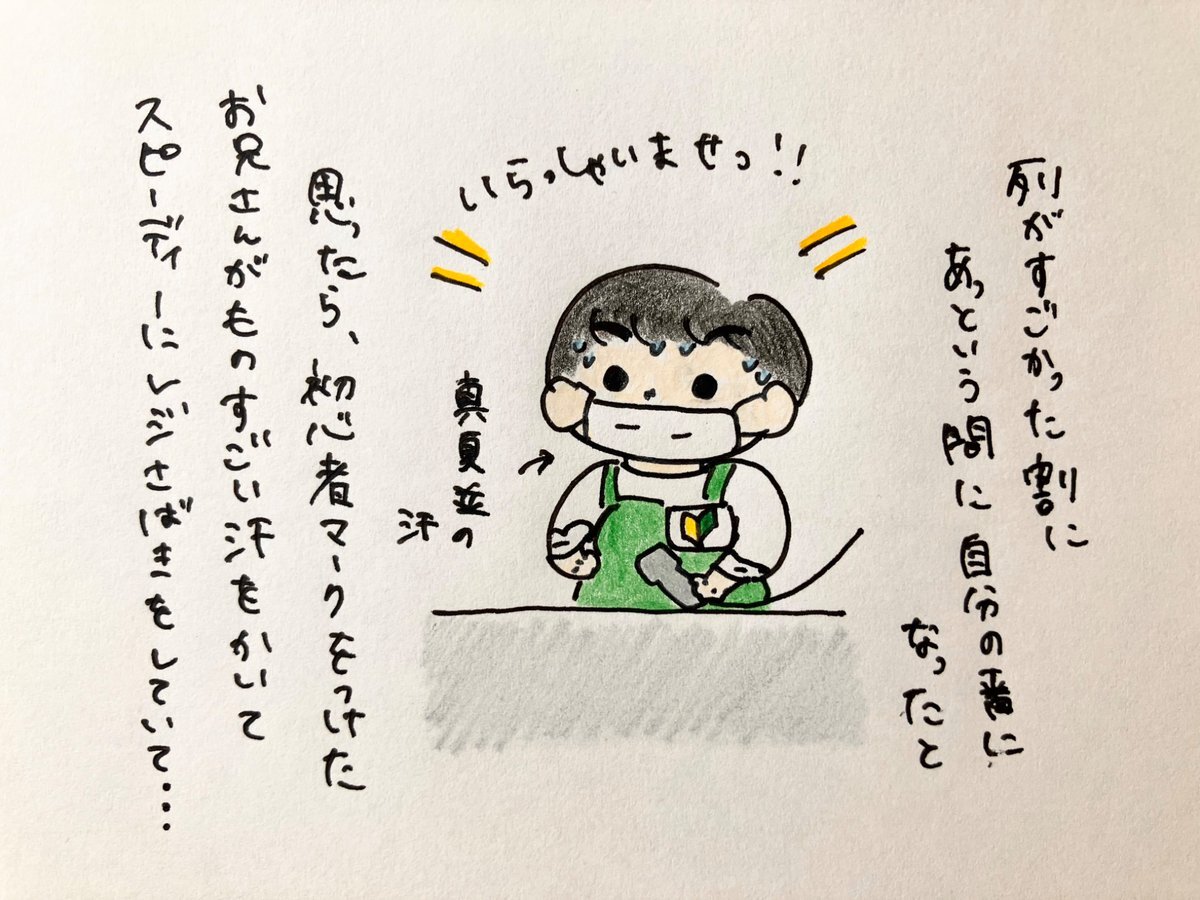 列がすごかった割に
あっという間に自分の番に
なったと
いらっしゃいませっ!!
真夏並の
汗
思ったら、初心者マークをつけた
お兄さんがものすごい汗をかいて
スピーディーにレジさばきをしていて・・・